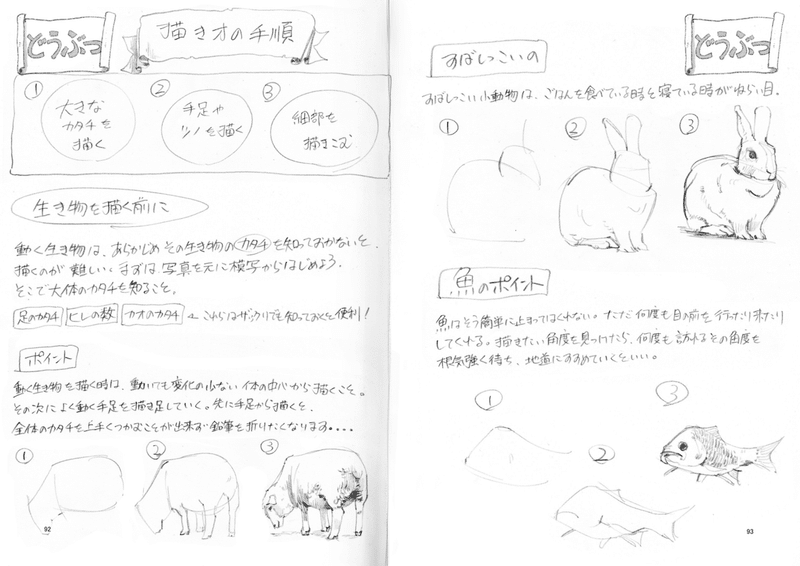 どうぶつ
描き方の手順
① 大きな
カタチを
描く
② 手足や
ツノを描く
③ 細部を
描きこむ
生き物を描く前に
動く生き物は、あらかじめその生き物のカタチを知っておかないと、
描くのが難しい。まずは、写真を元に模写からはじめよう。
そこで大体のカタチを知ること。
足のカタチ ヒレの数 カオのカタチ ← これらはザックリでも知っておくと便利!
ポイント
動く生き物を描く時は、動いても変化の少ない体の中心から描くこと。
その次によく動く手足を描き足していく。先に手足から描くと、
全体のカタチを上手くつかむことが出来ず鉛筆を折りたくなります・・・・
① ② ③
92
すばしっこいの
どうぶつ
すばしっこい小動物は、ごはんを食べている時と寝ている時がねらい目。
① ② ③
魚のポイント
魚はそう簡単に止まってはくれない。ただ何度も目の前を行ったり来たり
してくれる。描きたい角度を見つけたら、何度も訪れるその角度を
根気強く待ち、地道にすすめていくといい。
① ② ③
93